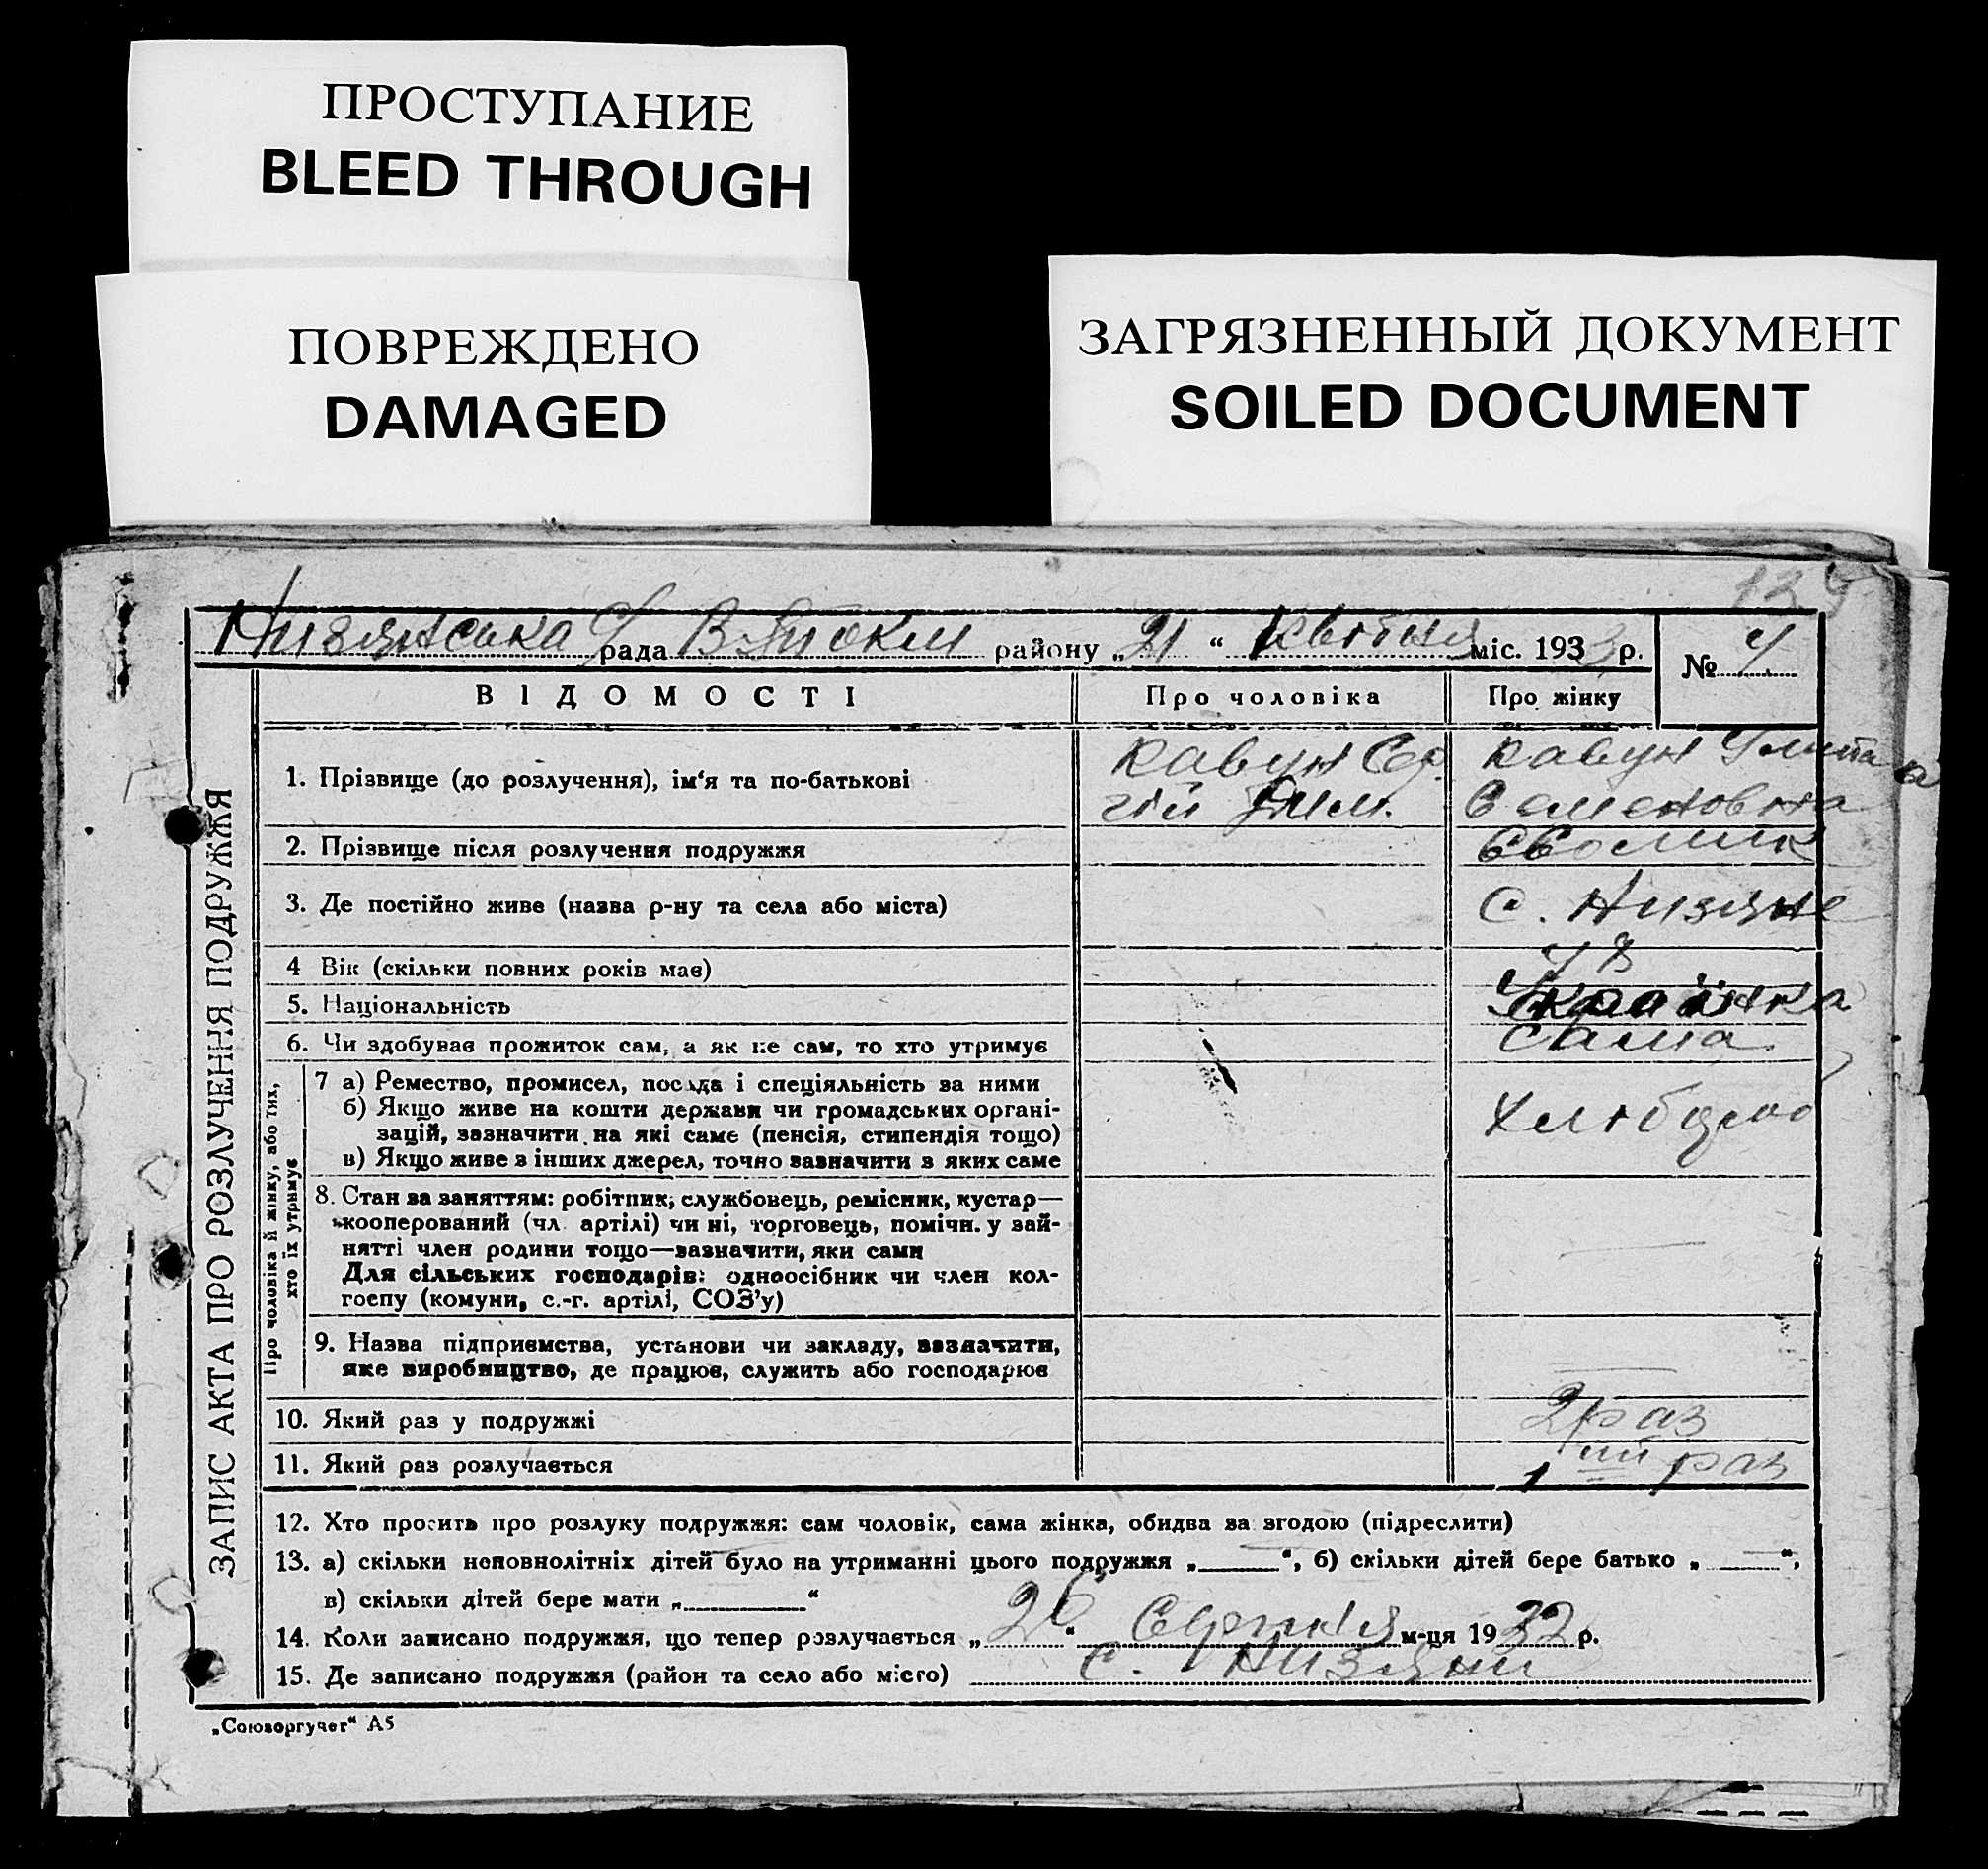 ПРОСТУПАНИЕ
BLEED THROUGH
ПОВРЕЖДЕНО
DAMAGED
ЗАГРЯЗНЕННЫЙ ДОКУМЕНТ
SOILED DOCUMENT
рада району „21“ Квітня міс. 1933 р.
№
ЗАПИС АКТА ПРО РОЗЛУЧЕННЯ ПОДРУЖЖЯ
ВІДОМОСТІ Про чоловіка Про жінку
1. Прізвище (до розлучення), ім'я та по-батькові Кавун Сер- Кавун
гій Семеновна
2. Прізвище після розлучення подружжя
3. Де постійно живе (назва р-ну та села або міста) с. Низяне
4 Вік (скільки повних років має)
5. Національність Українка
6. Чи здобуває прожиток сам, а як не сам, то хто утримує сама
Про чоловіка й жінку, або тих,
хто їх утримує
7 а) Ремество, промисел, посада і спеціяльність за ними
б) Якщо живе на кошти держави чи громадських органі-
зацій, зазначити на які саме (пенсія, стипендія тощо)
в) Якщо живе з інших джерел, точно зазначити з яких саме
8. Стан за заняттям: робітник, службовець, ремісник, кустар—
кооперований (чл. артілі) чи ні, торговець, помічн. у зай-
нятті член родини тощо—зазначити, яки сами
Для сільських господарів: одноосібник чи член кол-
госпу (комуни, с.-г. артілі, СОЗ'у)
9. Назва підприємства, установи чи закладу, зазначити,
яке виробництво, де працює, служить або господарює
10. Який раз у подружжі 2 раз
11. Який раз розлучається 1ий раз
12. Хто просить про розлуку подружжя: сам чоловік, сама жінка, обидва за згодою (підреслити)
13. а) скільки неповнолітніх дітей було на утриманні цього подружжя „ “, б) скільки дітей бере батько „ “,
в) скільки дітей бере мати „ “
14. Коли записано подружжя, що тепер розлучається „26“ Серпня м-ця 1932 р.
15. Де записано подружжя (район та село або місто) с. Низяни
„Союзоргучет“ А5